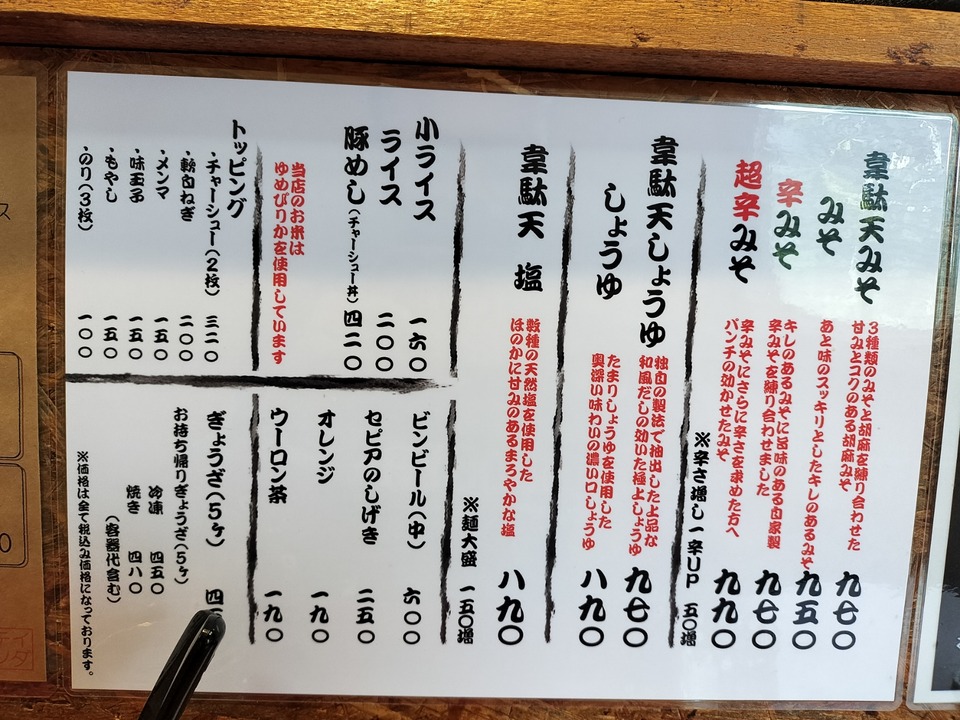 韋駄天みそ
3種類のみそと胡麻を練り合わせた
甘みとコクのある胡麻みそ
九七〇
みそ
あと味のスッキリとしたキレのあるみそ
九五〇
辛みそ
キレのあるみそに旨味のある自家製
辛みそを練り合わせました
九七〇
超辛みそ
辛みそにさらに辛さを求めた方へ
パンチの効かせたみそ
九九〇
※辛さ増し一辛UP 五〇増
韋駄天しょうゆ
独自の製法で抽出した上品な
和風だしの効いた極上しょうゆ
九七〇
しょうゆ
たまりしょうゆを使用した
奥深い味わいの濃い口しょうゆ
八九〇
韋駄天 塩
数種の天然塩を使用した
ほのかに甘みのあるまろやかな塩
八九〇
※麺大盛 一五〇増
小ライス 一六〇
ライス 二〇〇
豚めし(チャーシュー丼) 四二〇
当店のお米は
ゆめぴりかを使用しています
トッピング
・チャーシュー(2枚) 三二〇
・軟白ねぎ 二〇〇
・メンマ 一五〇
・味玉子 一五〇
・もやし 一五〇
・のり(3枚) 一〇〇
ビンビール(中) 六〇〇
セピアのしげき 二五〇
オレンジ 一九〇
ウーロン茶 一九〇
ぎょうざ(5ヶ) 四
お持ち帰りぎょうざ(5ヶ)
冷凍 四五〇
焼き 四八〇
(容器代含む)
※価格は全て税込み価格になっております。